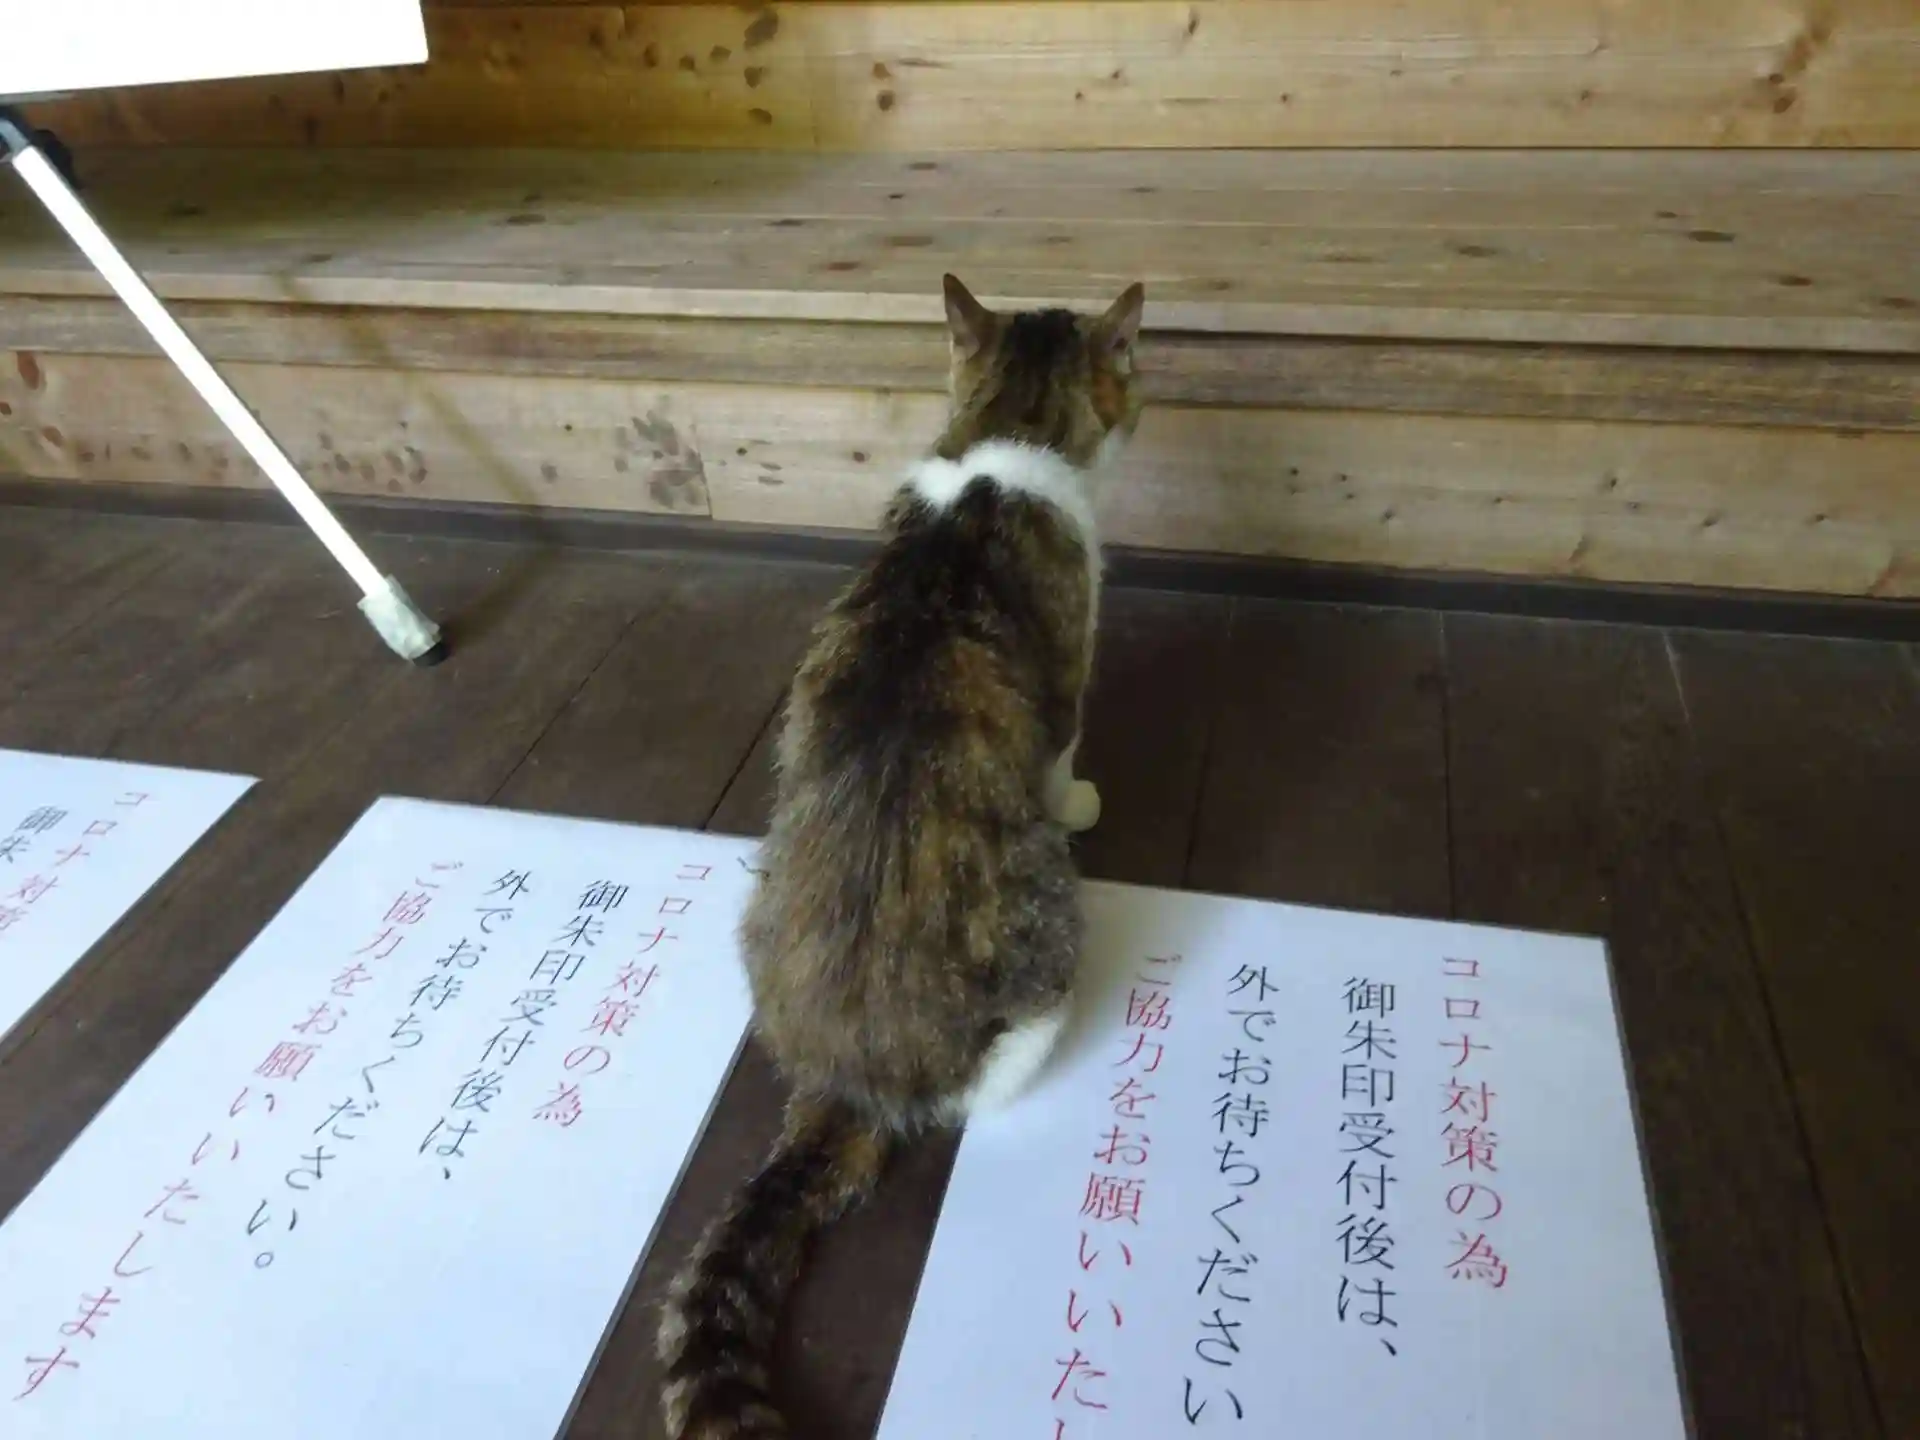 コロナ対策の為
御朱印受付後は、
外でお待ちください
ご協力をお願いいたし
コロナ対策の為
御朱印受付後は、
外でお待ちください。
ご協力をお願いいたします
コロナ対策
御朱